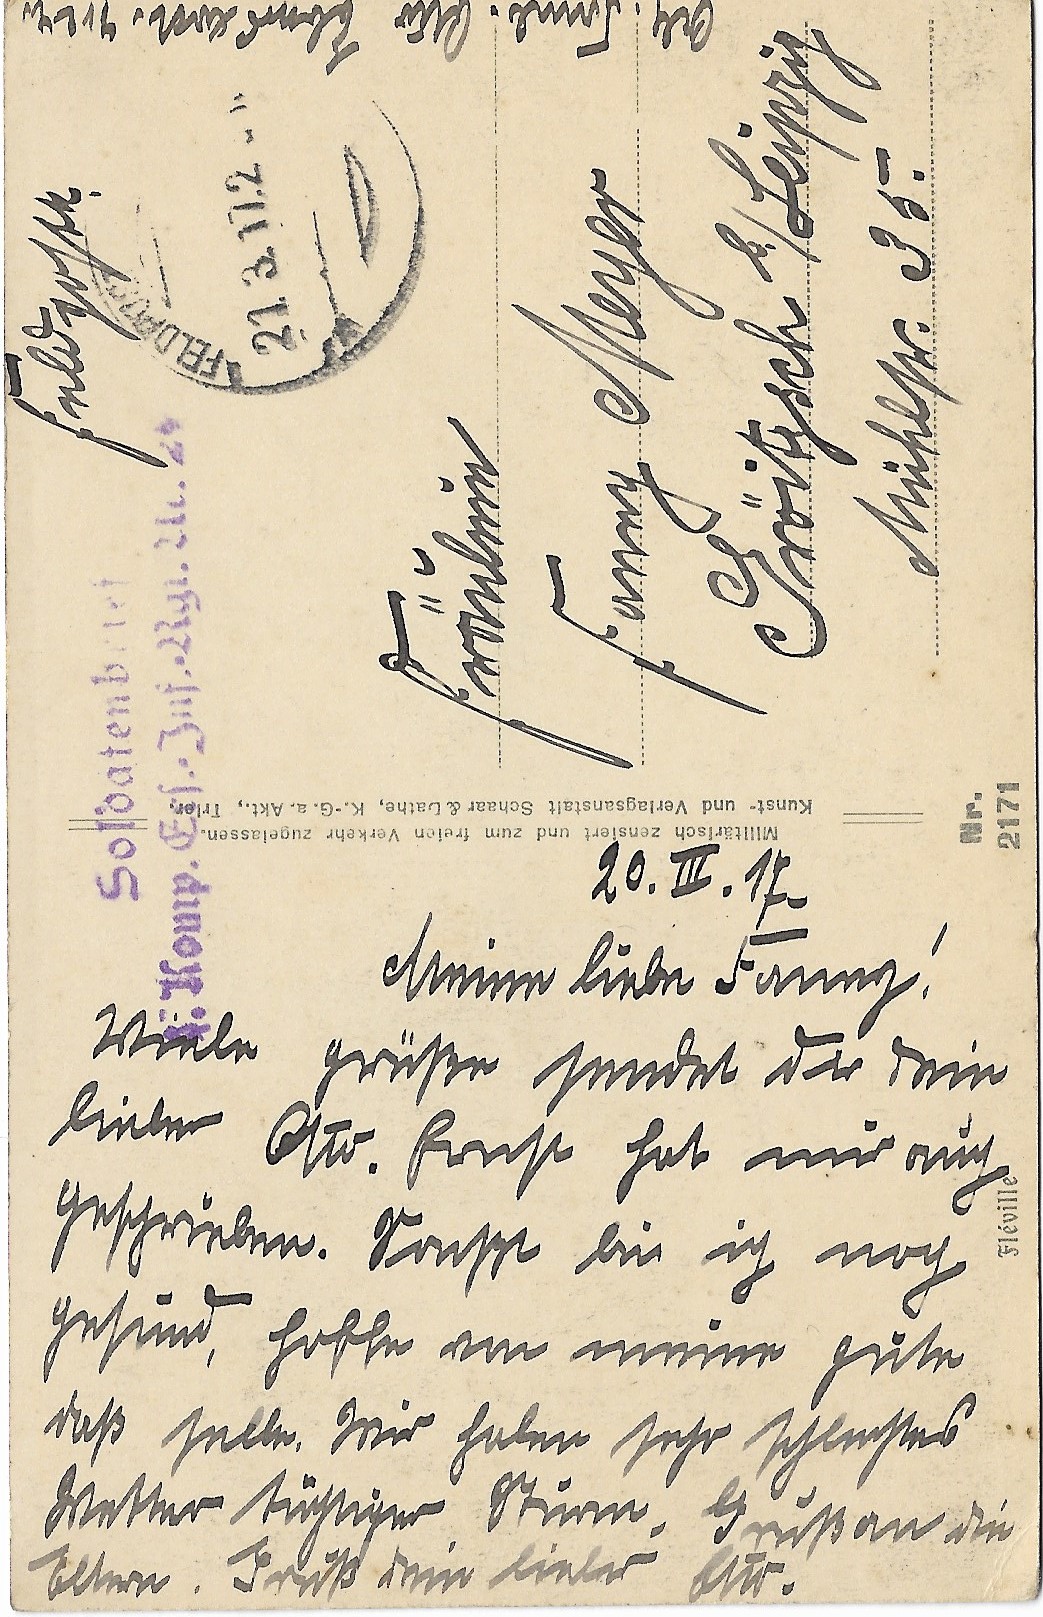 Feldpostk.
FELDPOST
21.3.17.2-
Soldatenbrief
Komp. Ers.-Inf.-Rgt. Nr. 24
Fräulein
Fanny Meyer
Gröitzsch b/Leipzig
Mühlstr. 35.
Militärisch zensiert und zum freien Verkehr zugelassen.
Kunst- und Verlagsanstalt Schaar & Dathe, K.-G. a. Akt., Trier.
Nr. 2171
Fléville
20. III. 17.
Meine liebe Fanny!
Viele grüße sendet dir dein
lieber Otto. Ernst hat mir auch
geschrieben. Sonst bin ich noch
gesund, hoffe von meine gute
daß selbe. Wir haben sehr schlechtes
Wetter tüchtiger Sturm. Gruß an die
Eltern. Gruß dein lieber Otto.